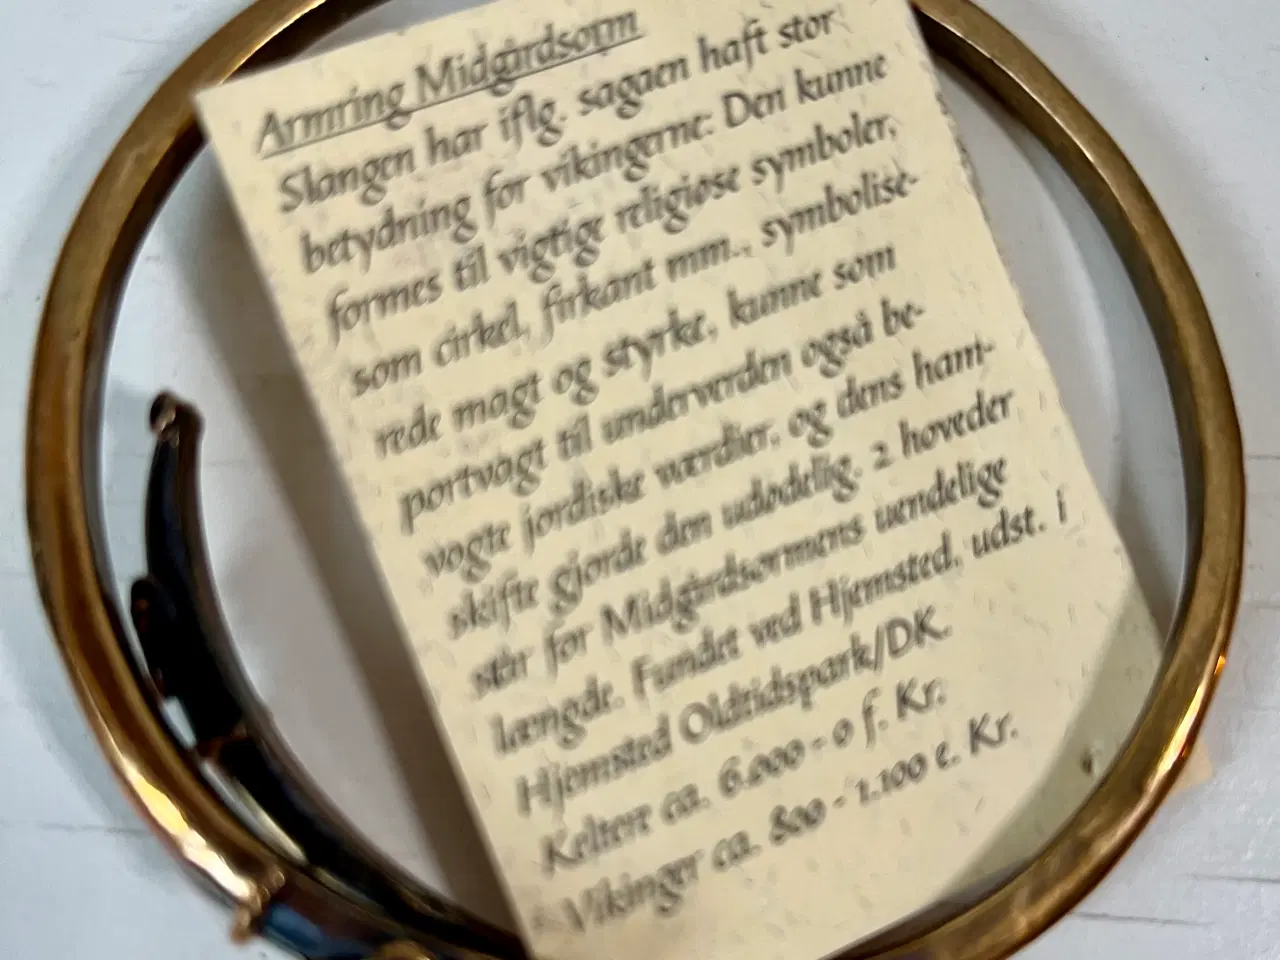 Armring Midgårdsorm
Slangen har iflg. sagaen haft stor
betydning for vikingerne: Den kunne
formes til vigtige religiøse symboler,
som cirkel, firkant mm., symbolise-
rede magt og styrke, kunne som
portvagt til underverden også be-
vogte jordiske værdier, og dens ham-
skifte gjorde den udødelig. 2 hoveder
står for Midgårdsormens uendelige
længde. Fundet ved Hjemsted, udst. i
Hjemsted Oldtidspark/DK.
Keltere ca. 6.000 - 0 f. Kr.
Vikinger ca. 800 - 1.100 e. Kr.